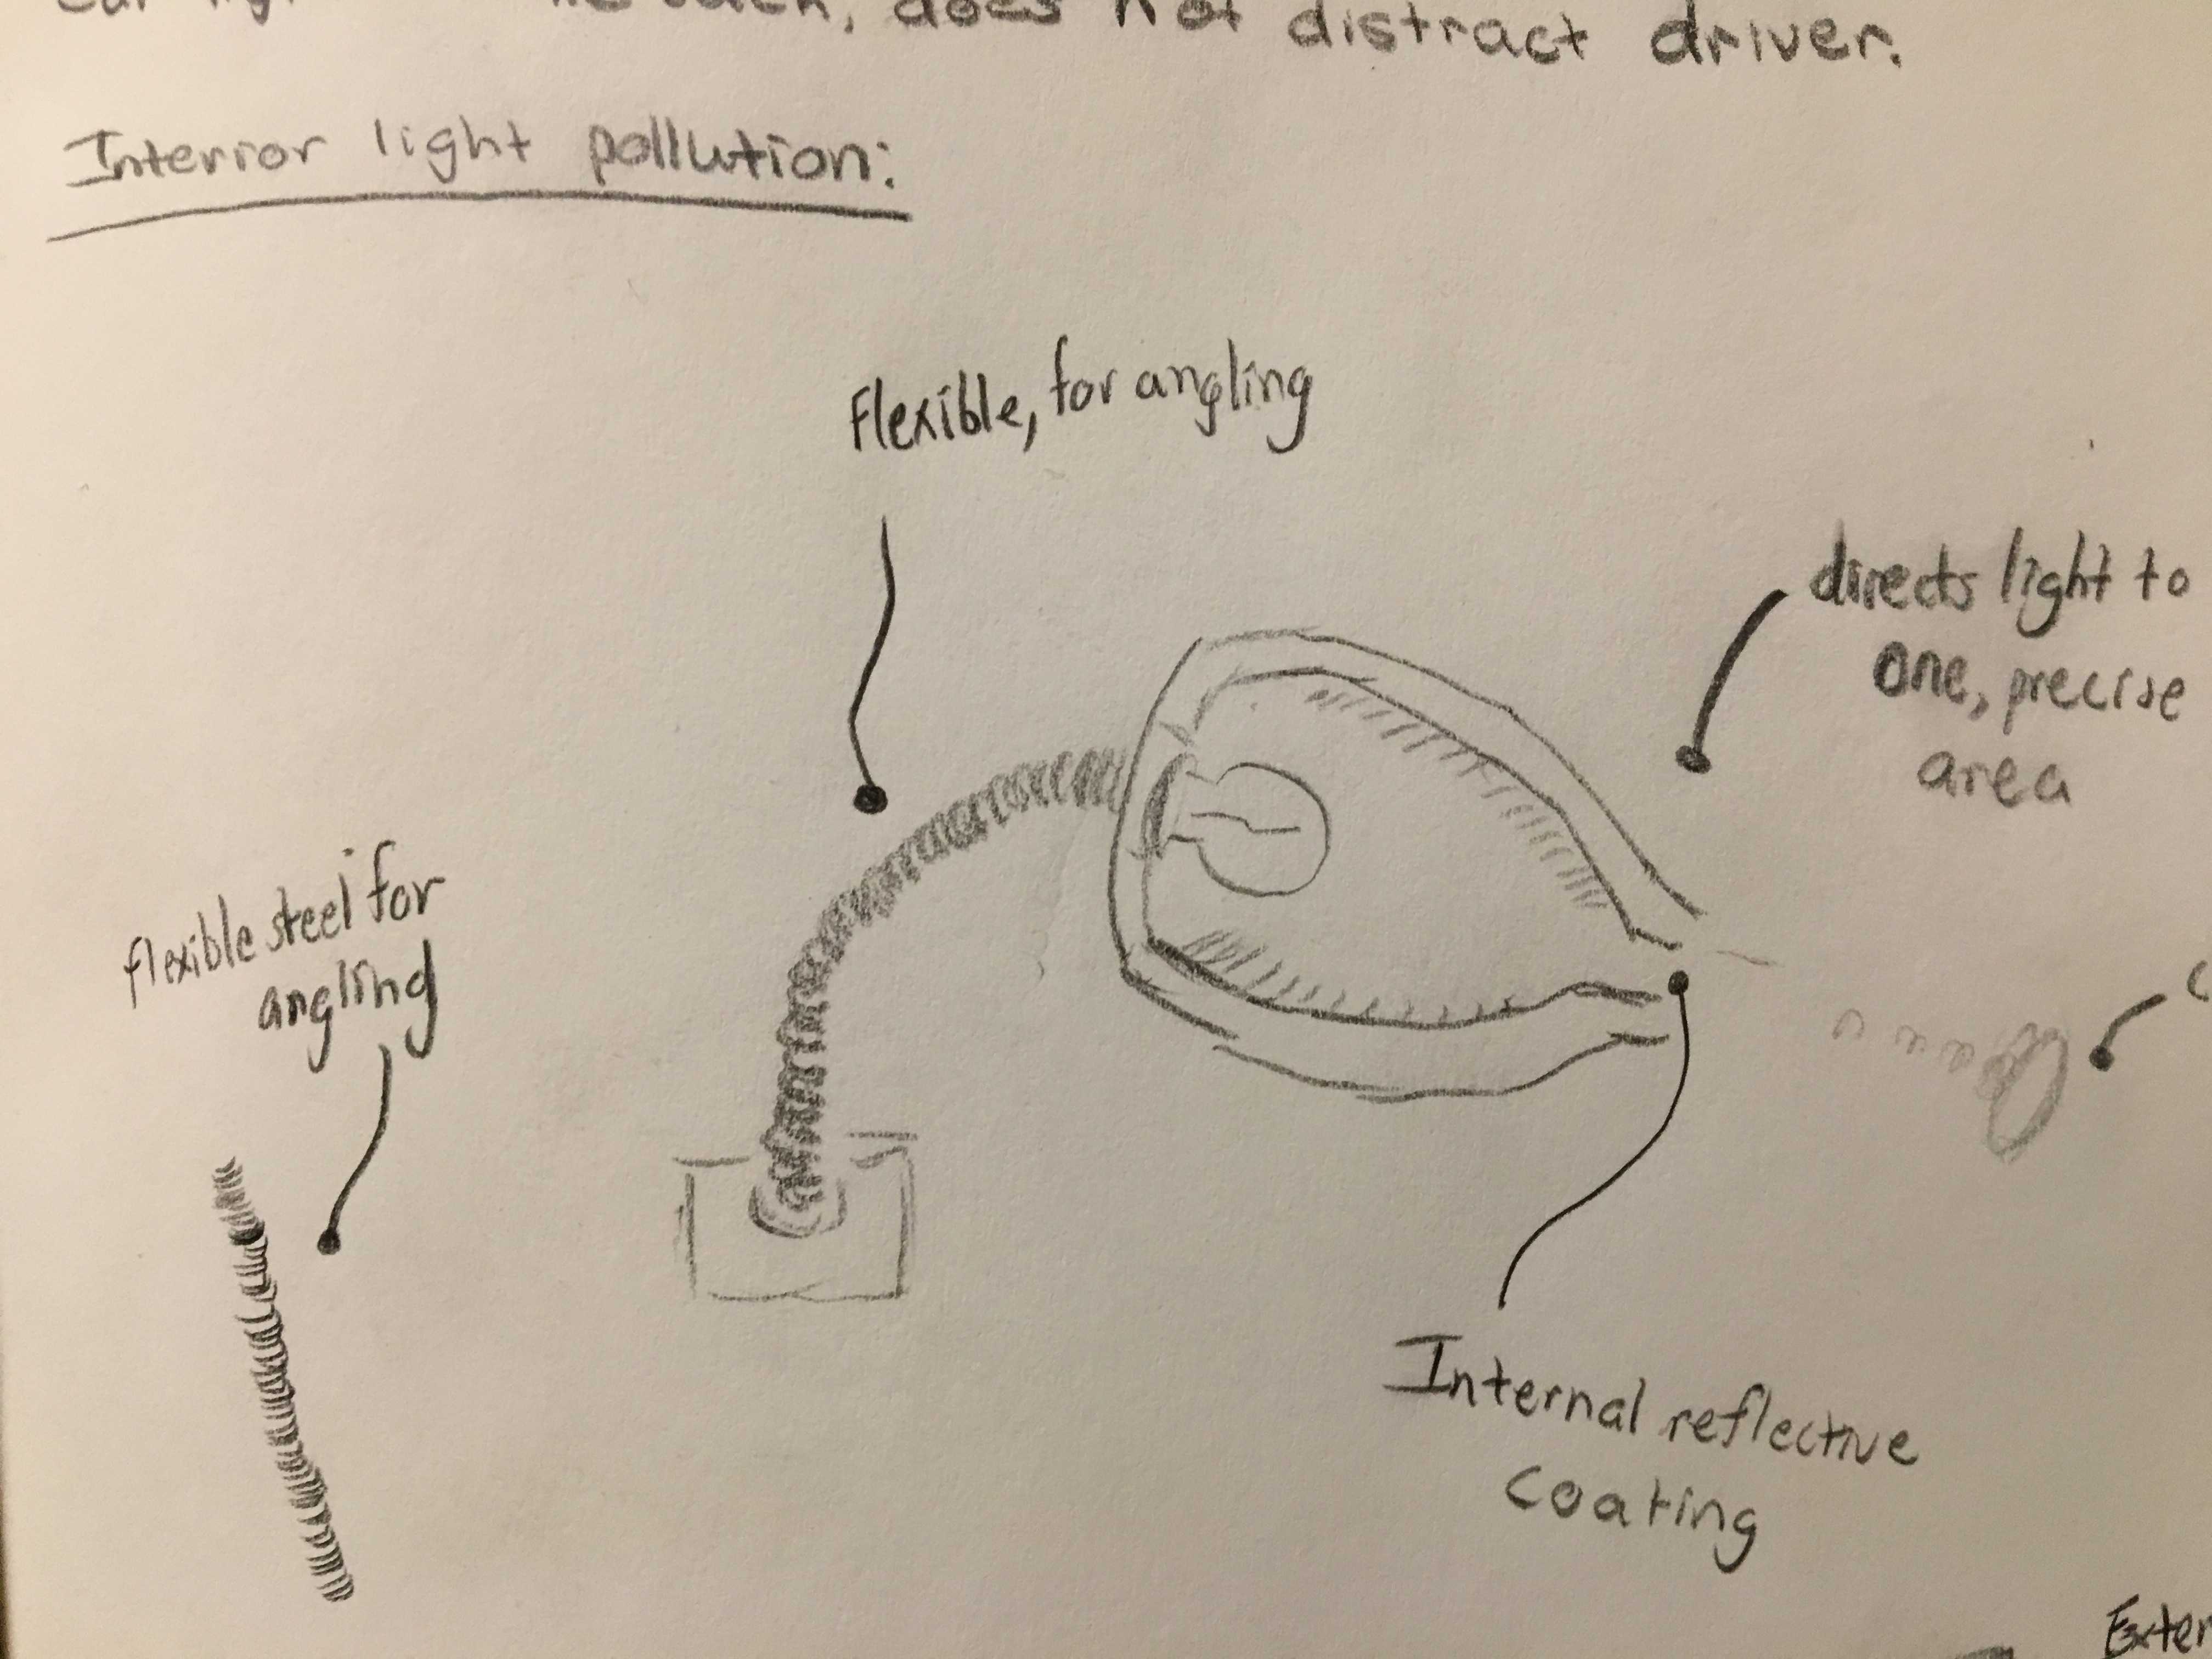 does not distract driver.
Interior light pollution:
Flexible, for angling
directs light to
one, precise
area
flexible steel for
angling
Internal reflective
coating